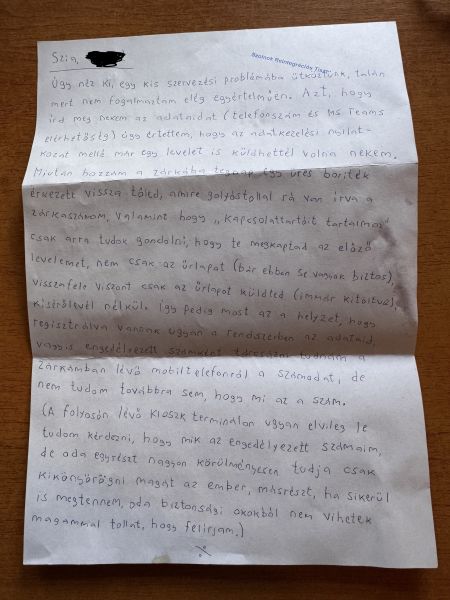 Szia,
Úgy néz ki, egy kis szervezési problémába ütköztünk, talán
mert nem fogalmaztam elég egyértelműen. Azt, hogy
írd meg nekem az adataidat (telefonszám és MS Teams
elérhetőség) úgy értettem, hogy az adatkezelési nyilat-
kozat mellé már egy levelet is küldhettél volna nekem.
Miután hozzám a zárkába tegnap egy üres boríték
érkezett vissza tőled, amire golyóstollal rá van írva a
zárkaszámom, valamint hogy „kapcsolattartói tartalmaz"
csak arra tudok gondolni, hogy te megkaptad az előző
levelemet, nem csak az űrlapot (bár ebben se vagyok biztos),
visszafelé viszont csak az űrlapot küldted (immár kitöltve),
kísérőlevél nélkül. Így pedig most az a helyzet, hogy
regisztrálva vannak ugyan a rendszerben az adataid,
vagyis engedélyezett számként tárcsázni tudnám a
zárkámban lévő mobiltelefonról a számodat, de
nem tudom továbbra sem, hogy mi az a szám.
(A folyosón lévő kioszk terminálon ugyan elvileg le
tudom kérdezni, hogy mik az engedélyezett számaim,
de oda egyrészt nagyon körülményesen tudja csak
kikönyörögni magát az ember, másrészt, ha sikerül
is megtennem, oda biztonsági okokból nem vihetek
magammal tollat, hogy felírjam.)